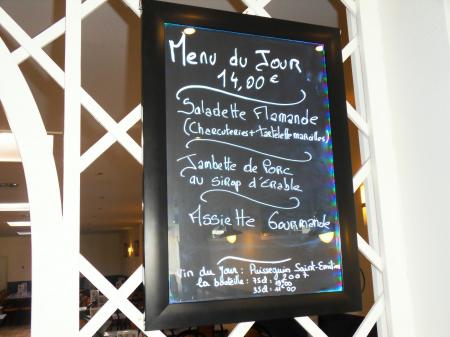 Menu du Jour
14,00€
Saladette Flamande
(Charcuteries + tartelette maroilles)
Jambette de Porc
au sirop d'érable
Assiette Gourmande
Vin du Jour: Puisseguin Saint-Emilion
la bouteille: 75cl:
35cl: 11€00